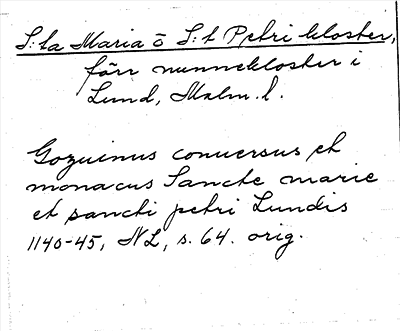 S:ta Maria o S:t Petri kloster,
förr nunnekloster i
Lund, Malm. l.
Gozuinus conuersus et
monacus Sancte marie
et sancti petri Lundis
1140-45, NL, s. 64. orig.